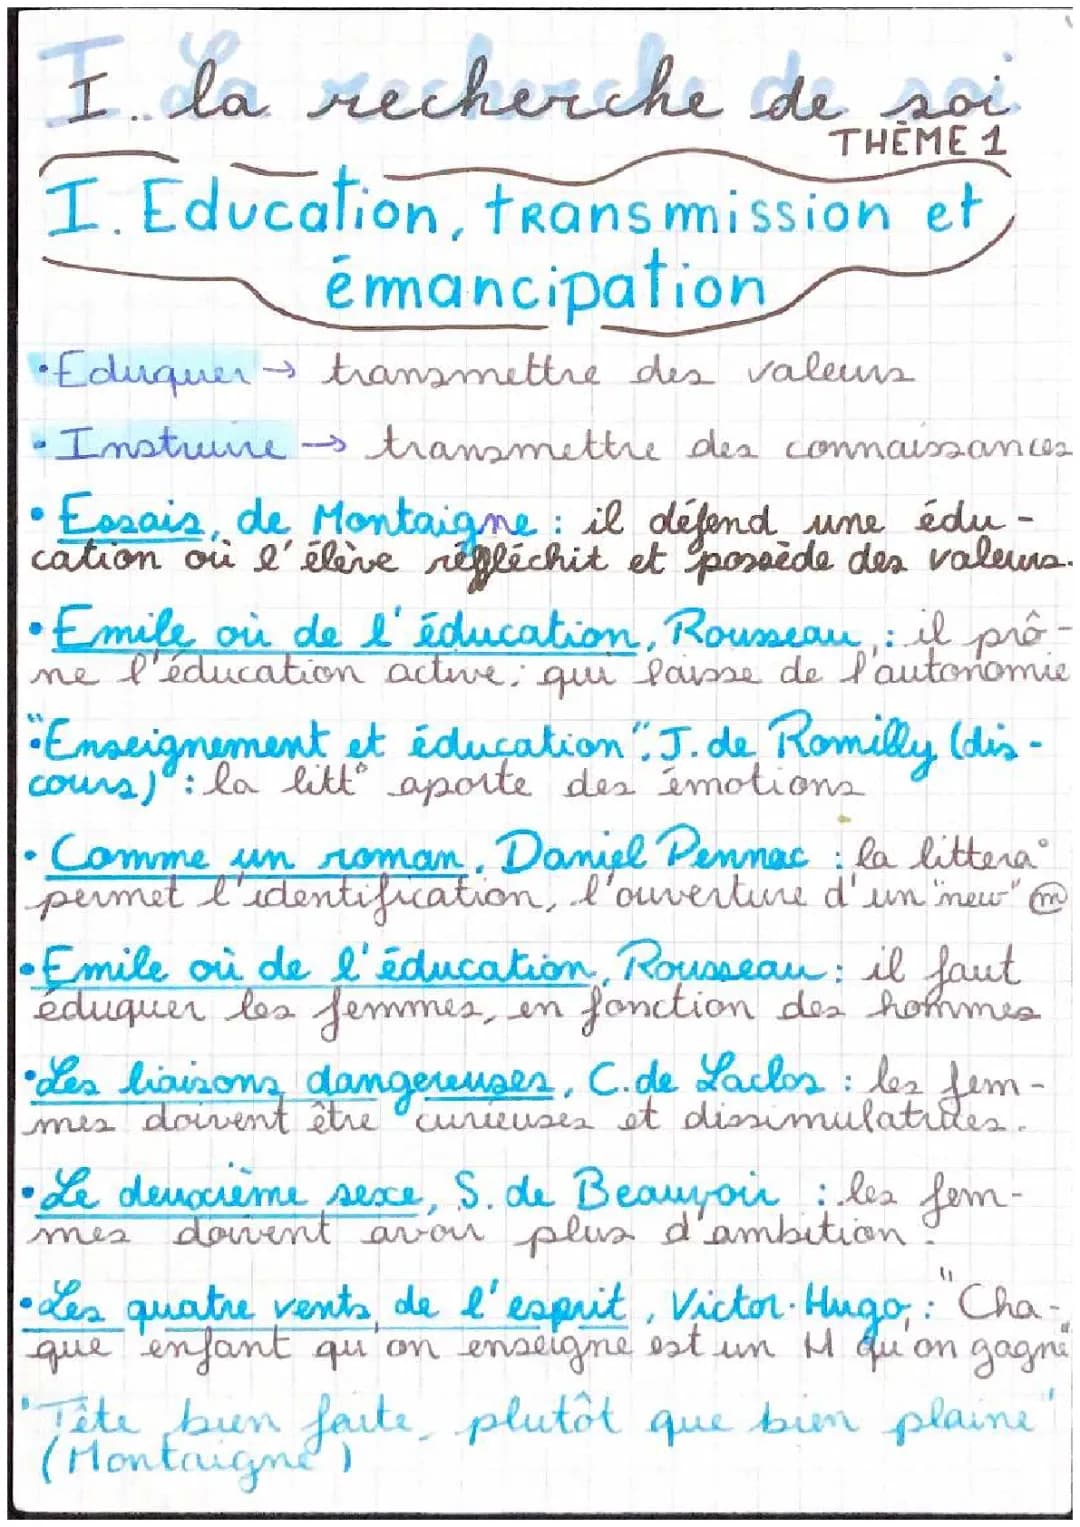 I. la recherche de soi
THÈME 1
I. Education, transmission et
émancipation
• Eduquer → transmettre des valeurs
• Instruire → transmettre des connaissances
• Essais, de Montaigne : il défend une édu-
cation où l'élève réfléchit et possède des valeurs.
• Emile où de l'éducation, Rousseau, : il prô-
ne l'éducation active; qui laisse de l'autonomie
"• Enseignement et éducation", J. de Romilly (dis-
cours) : la litt° aporte des émotions
• Comme un roman, Daniel Pennac : la littera°
permet l'identification, l'ouverture d'un "new" m
• Emile où de l'éducation, Rousseau : il faut
éduquer les femmes, en fonction des hommes
• Les liaisons dangereuses, C. de Laclos : les fem-
mes doivent être curieuses et dissimulatrices.
• Le deuxième sexe, S. de Beauvoir : les fem-
mes doivent avoir plus d'ambition.
• Les quatre vents de l'esprit, Victor Hugo, : "Cha-
que enfant qu'on enseigne est un M qu'on gagne"
"Tête bien faite, plutôt que bien plaine"
(Montaigne)